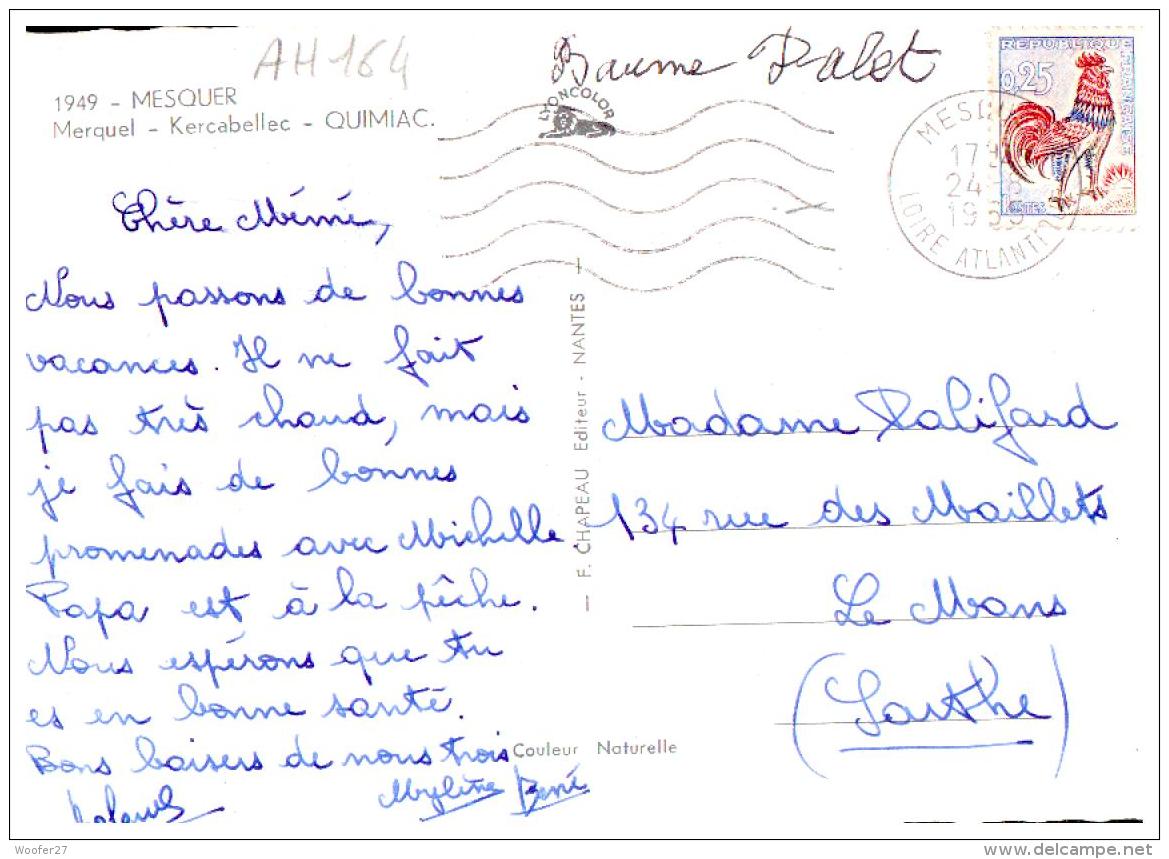 AH 164
Baume Palet
1949 - MESQUER
Merquel - Kercabellec - QUIMIAC.
LYONCOLOR
REPUBLIQUE
FRANÇAISE
0,25
POSTES
17
24 - 8
LOIRE ATLANTIQUE
Chère Mémé,
Nous passons de bonnes
vacances. Il ne fait
pas très chaud, mais
je fais de bonnes
promenades avec Michelle
Papa est à la pêche.
Nous espérons que tu
es en bonne santé.
Bons baisers de nous trois
Mylène René
F. CHAPEAU Editeur - NANTES
Couleur Naturelle
Madame Palifard
134 rue des Maillets
Le Mans
(Sarthe)
Woofer27
delcampe.net